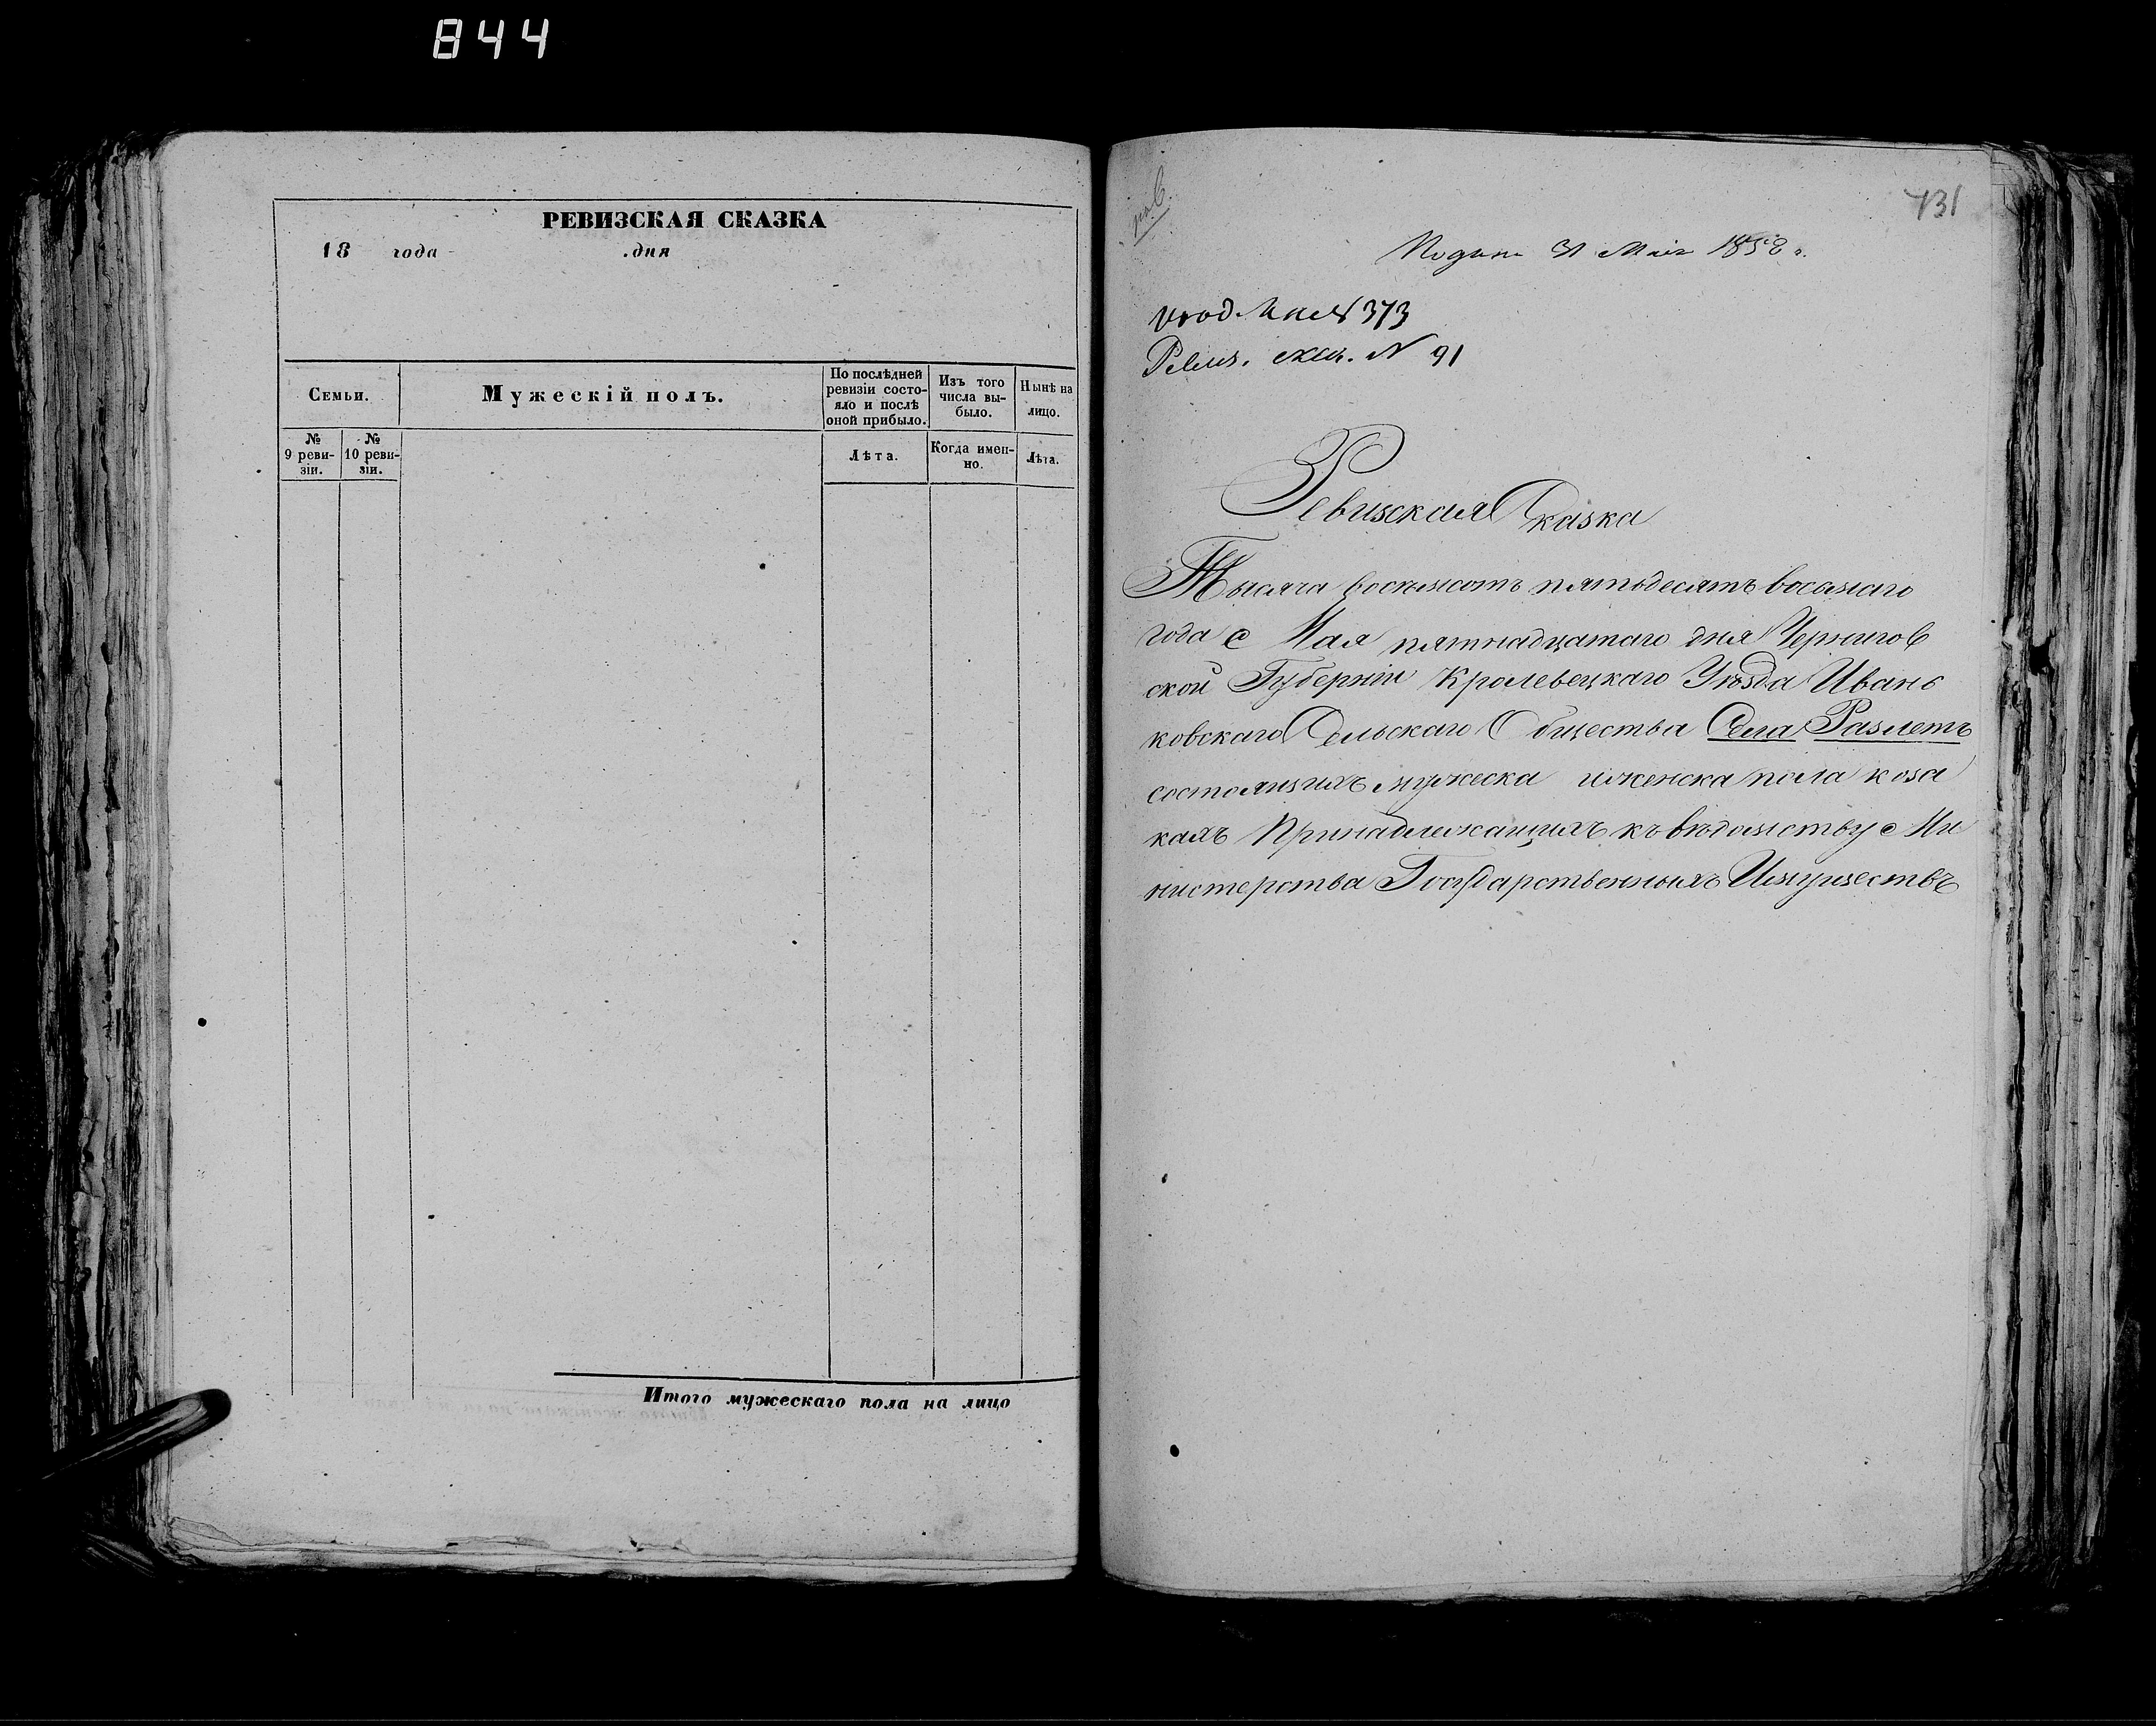 844
РЕВИЗСКАЯ СКАЗКА
18 года дня
Семьи.
Мужескій полъ.
По послѣдней ревизіи состояло и послѣ оной прибыло.
Изъ того числа выбыло.
Нынѣ на лицо.
№ 9 ревизіи.
№ 10 ревизіи.
Лѣта.
Когда именно.
Лѣта.
Итого мужескаго пола на лицо
731
31 Мая 1858 г.
373
Ревиз. сказ. N 91
Ревизская Сказка
Тысяча восемьсотъ пятьдесятъ восьмаго
года Мая пятнадцатаго дня Чернигов
ской Губерніи Кролевецкаго Уѣзда Ивань
ковскаго Сельскаго Общества Села Разлетъ
состоящихъ мужеска и женска пола коза
кахъ Принадлежащихъ къ вѣдомству Ми
нистерства Государственныхъ Имуществъ